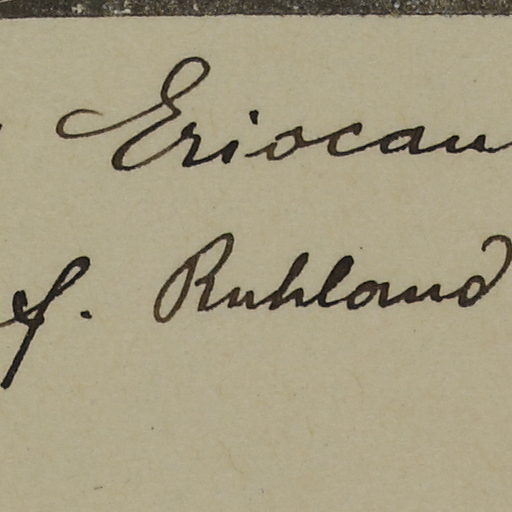 Eriocau
f. Ruhland